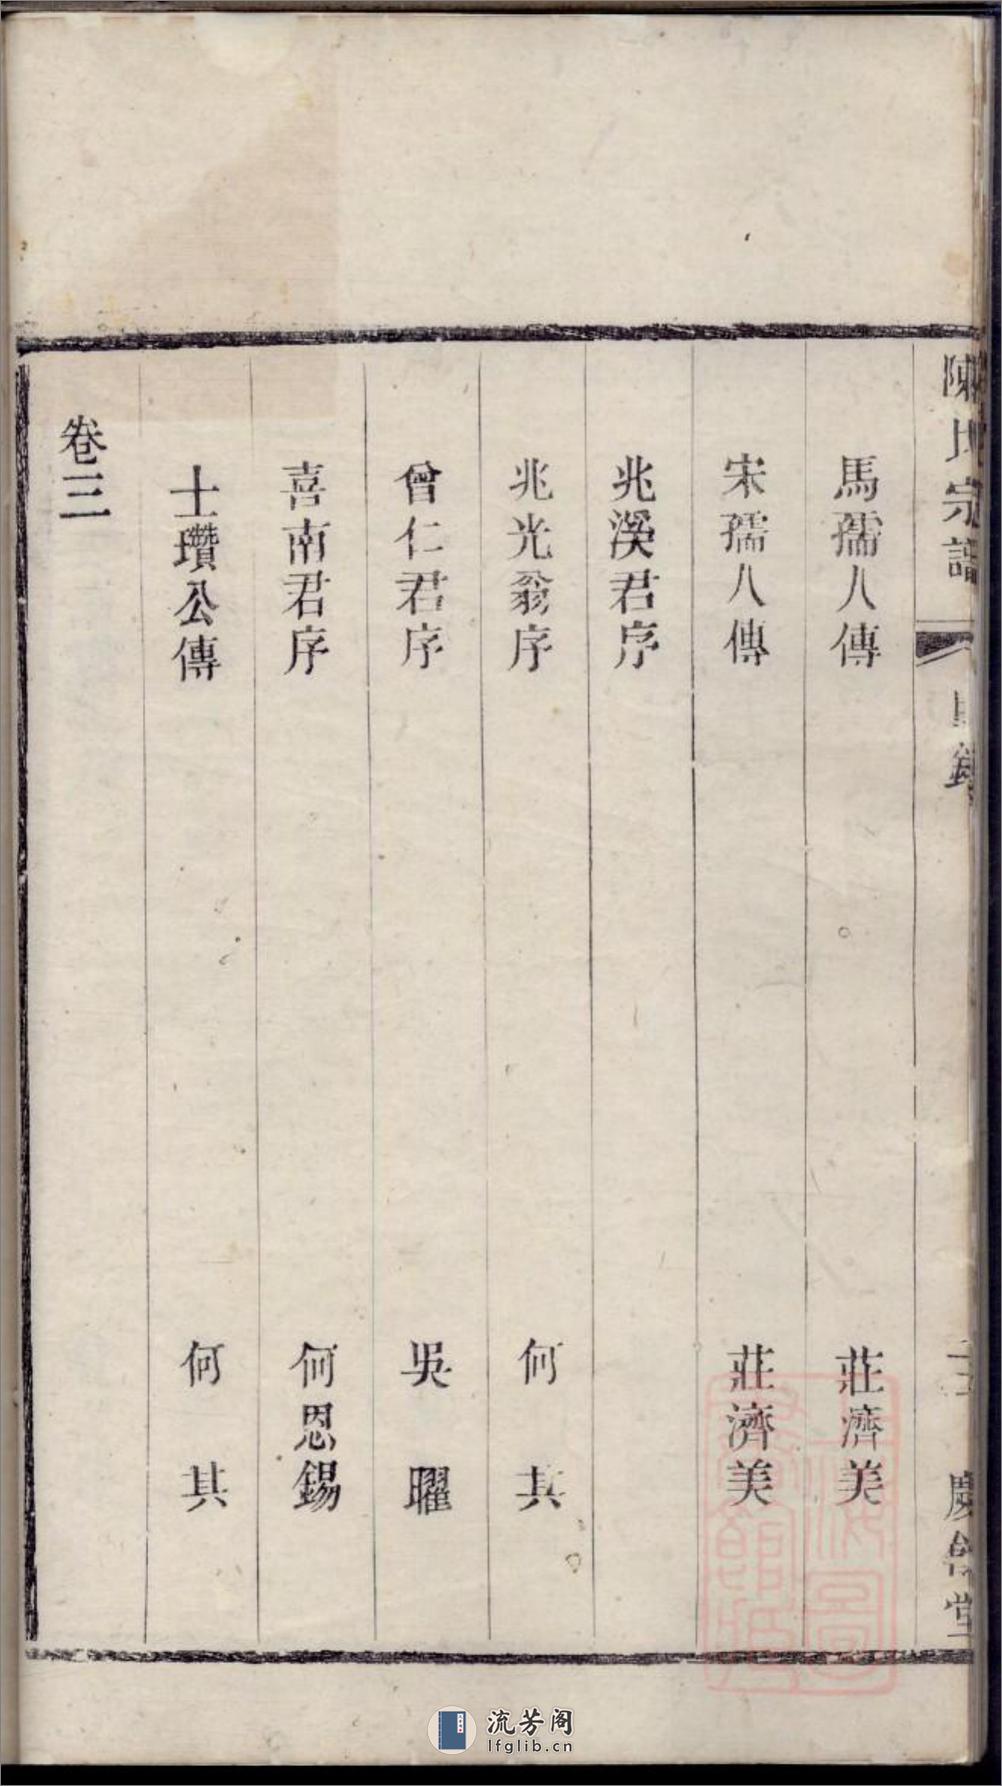 陳氏宗譜 目錄 慶餘堂
馬孺人傳 莊濟美
宋孺人傳 莊濟美
兆溪君序
兆光翁序 何其
曾仁君序 吳曜
喜南君序 何恩錫
士瓚公傳 何其
卷三
流芳阁
lfglib.cn